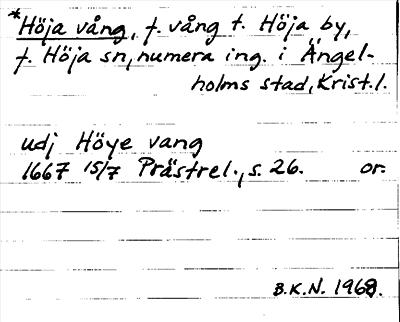 *Höja vång, f. vång t. Höja by,
f. Höja sn, numera ing. i Ängel-
holms stad, Krist. l.
udj Höye vang
1667 15/7 Prästrel., s. 26. or.
B.K.N. 1968.